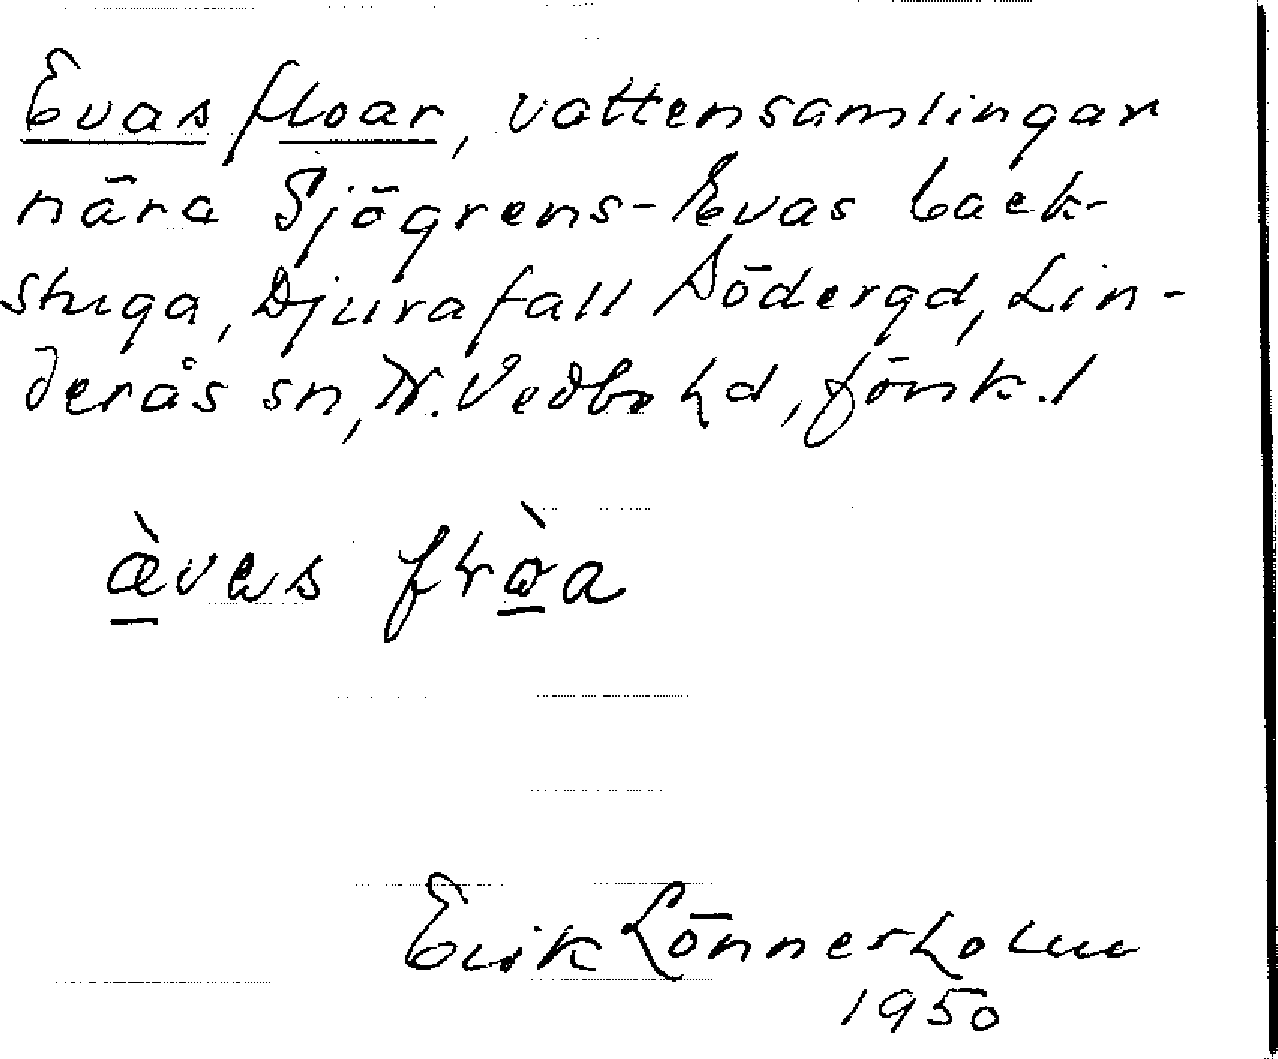 Evas floar, vattensamlingar
nära Sjögrens-Evas back-
stuga, Djurafall Södergd, Lin-
derås sn, N. Vedbo hd, Jönk. l
Erik Lönnerholm
1950